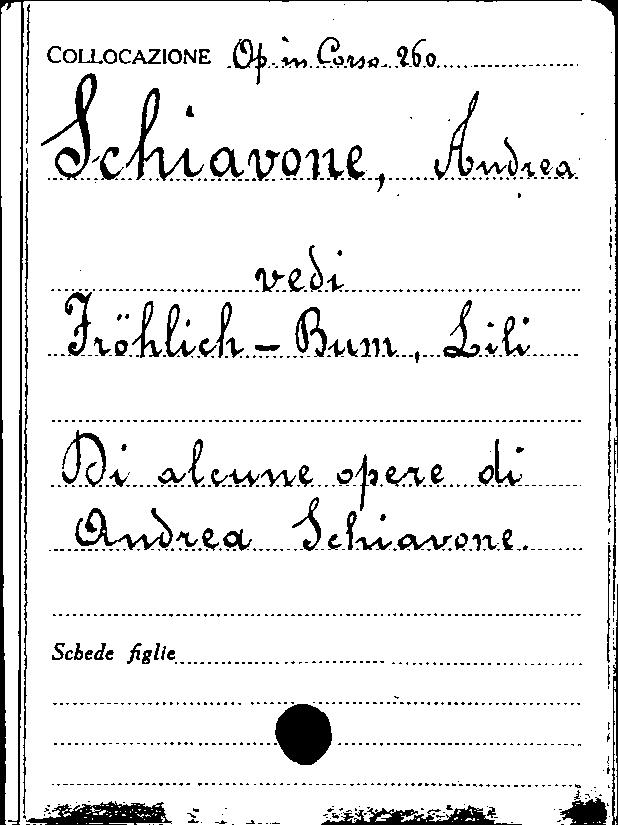 COLLOCAZIONE Op. in Corso. 260
Schiavone, Andrea
vedi
Fröhlich - Bum, Lili
Di alcune opere di
Andrea Schiavone.
Schede figlie